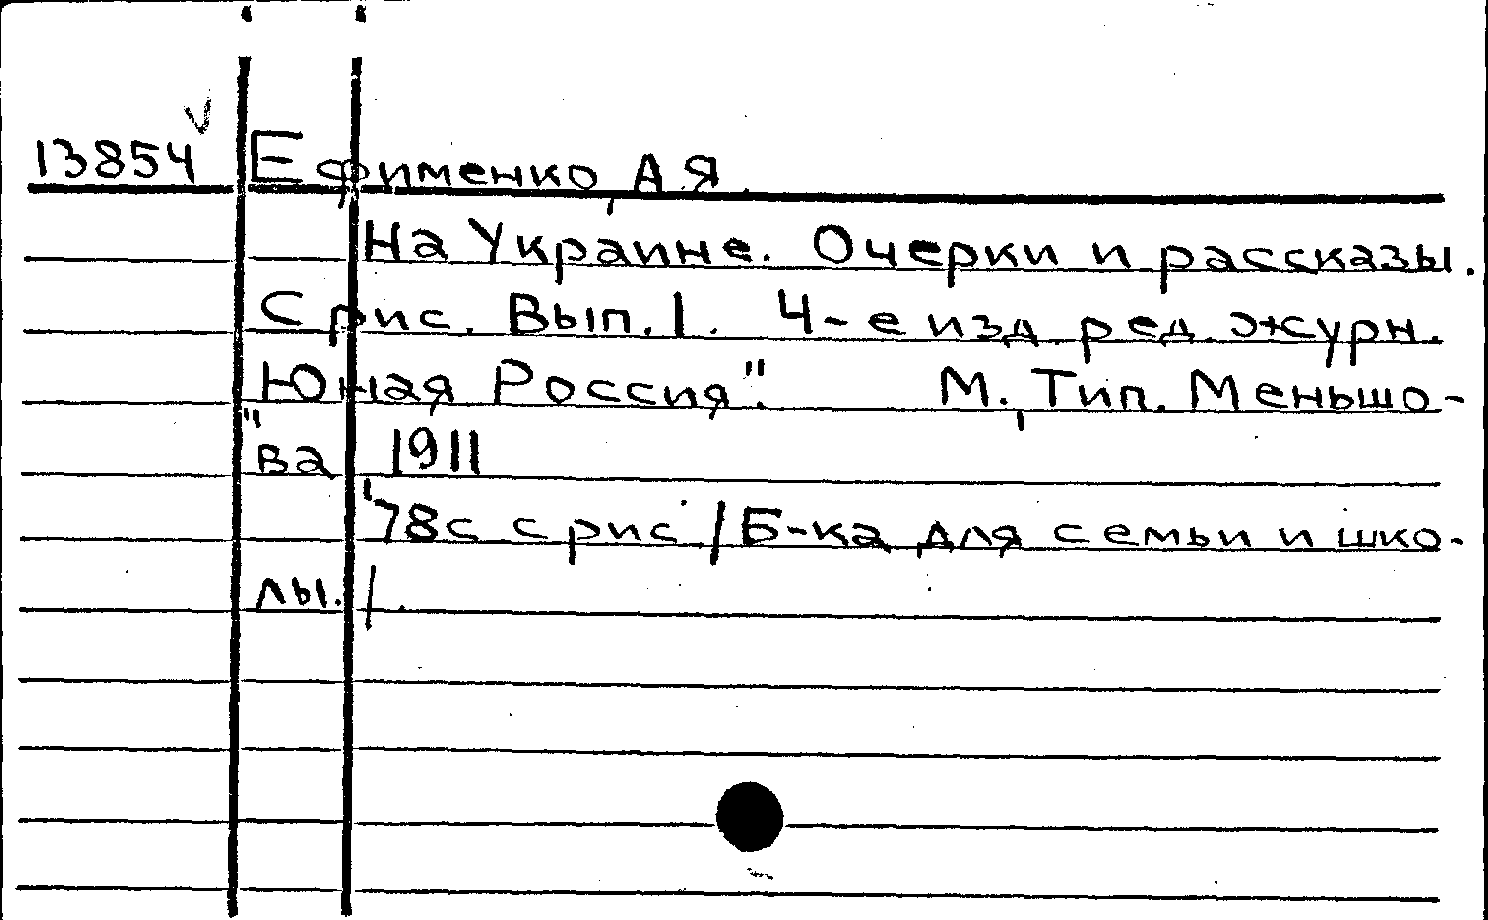 13854 Ефименко, А.Я.
На Украине. Очерки и рассказы.
С рис. Вып. 1. 4-е изд. ред. журн.
"Юная Россия". М., Тип. Меньшо-
ва, 1911
78с. с рис. /Б-ка для семьи и шко-
лы./.